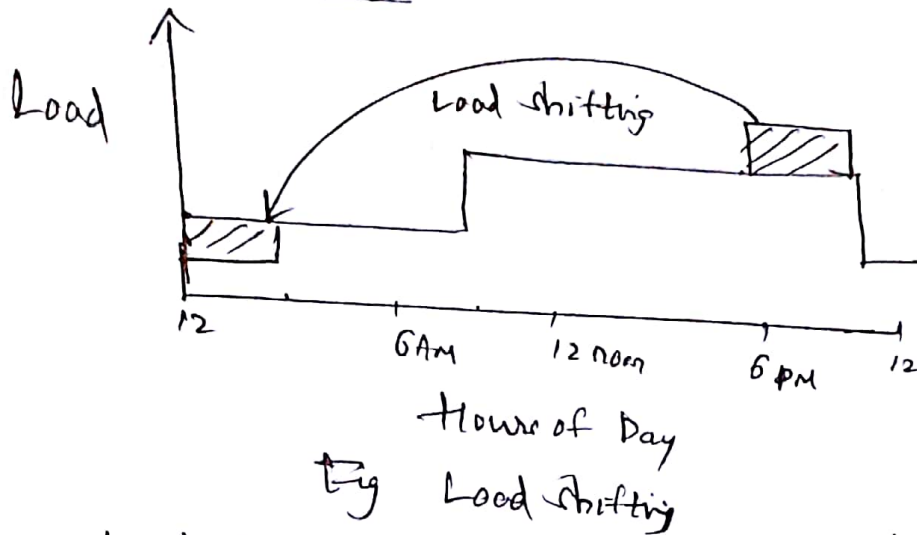 Load
Load shifting
12
6 AM
12 noon
6 PM
12
Hours of Day
Fig Load shifting